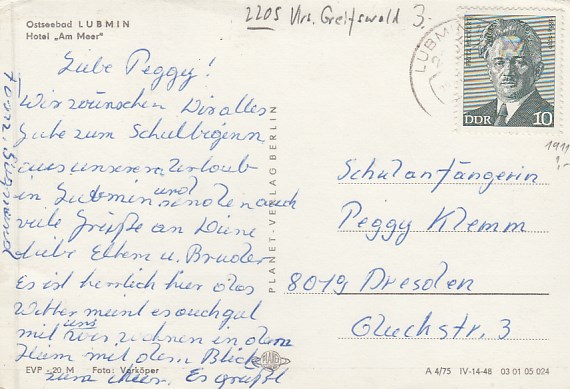 Ostseebad LUBMIN
Hotel „Am Meer"
2205 Krs. Greifswald
3.-
LUBMIN
DDR 10
1911
1,-
Liebe Peggy!
Wir wünschen Dir alles
Gute zum Schulbeginn
aus unserem Urlaub
in Lubmin und senden auch
viele Grüße an Deine
liebe Eltern u. Bruder
Es ist herrlich hier das
Wetter meint es auch gut
mit uns wir wohnen in dem
Heim mit dem Blick
zum Meer. Es grüßt
Fam.
PLANET-VERLAG BERLIN
Schulanfängerin
Peggy Klemm
8019 Dresden
Gluckstr. 3
EVP -20 M Foto: Verköper
PLANET
A 4/75 IV-14-48 03 01 05 024